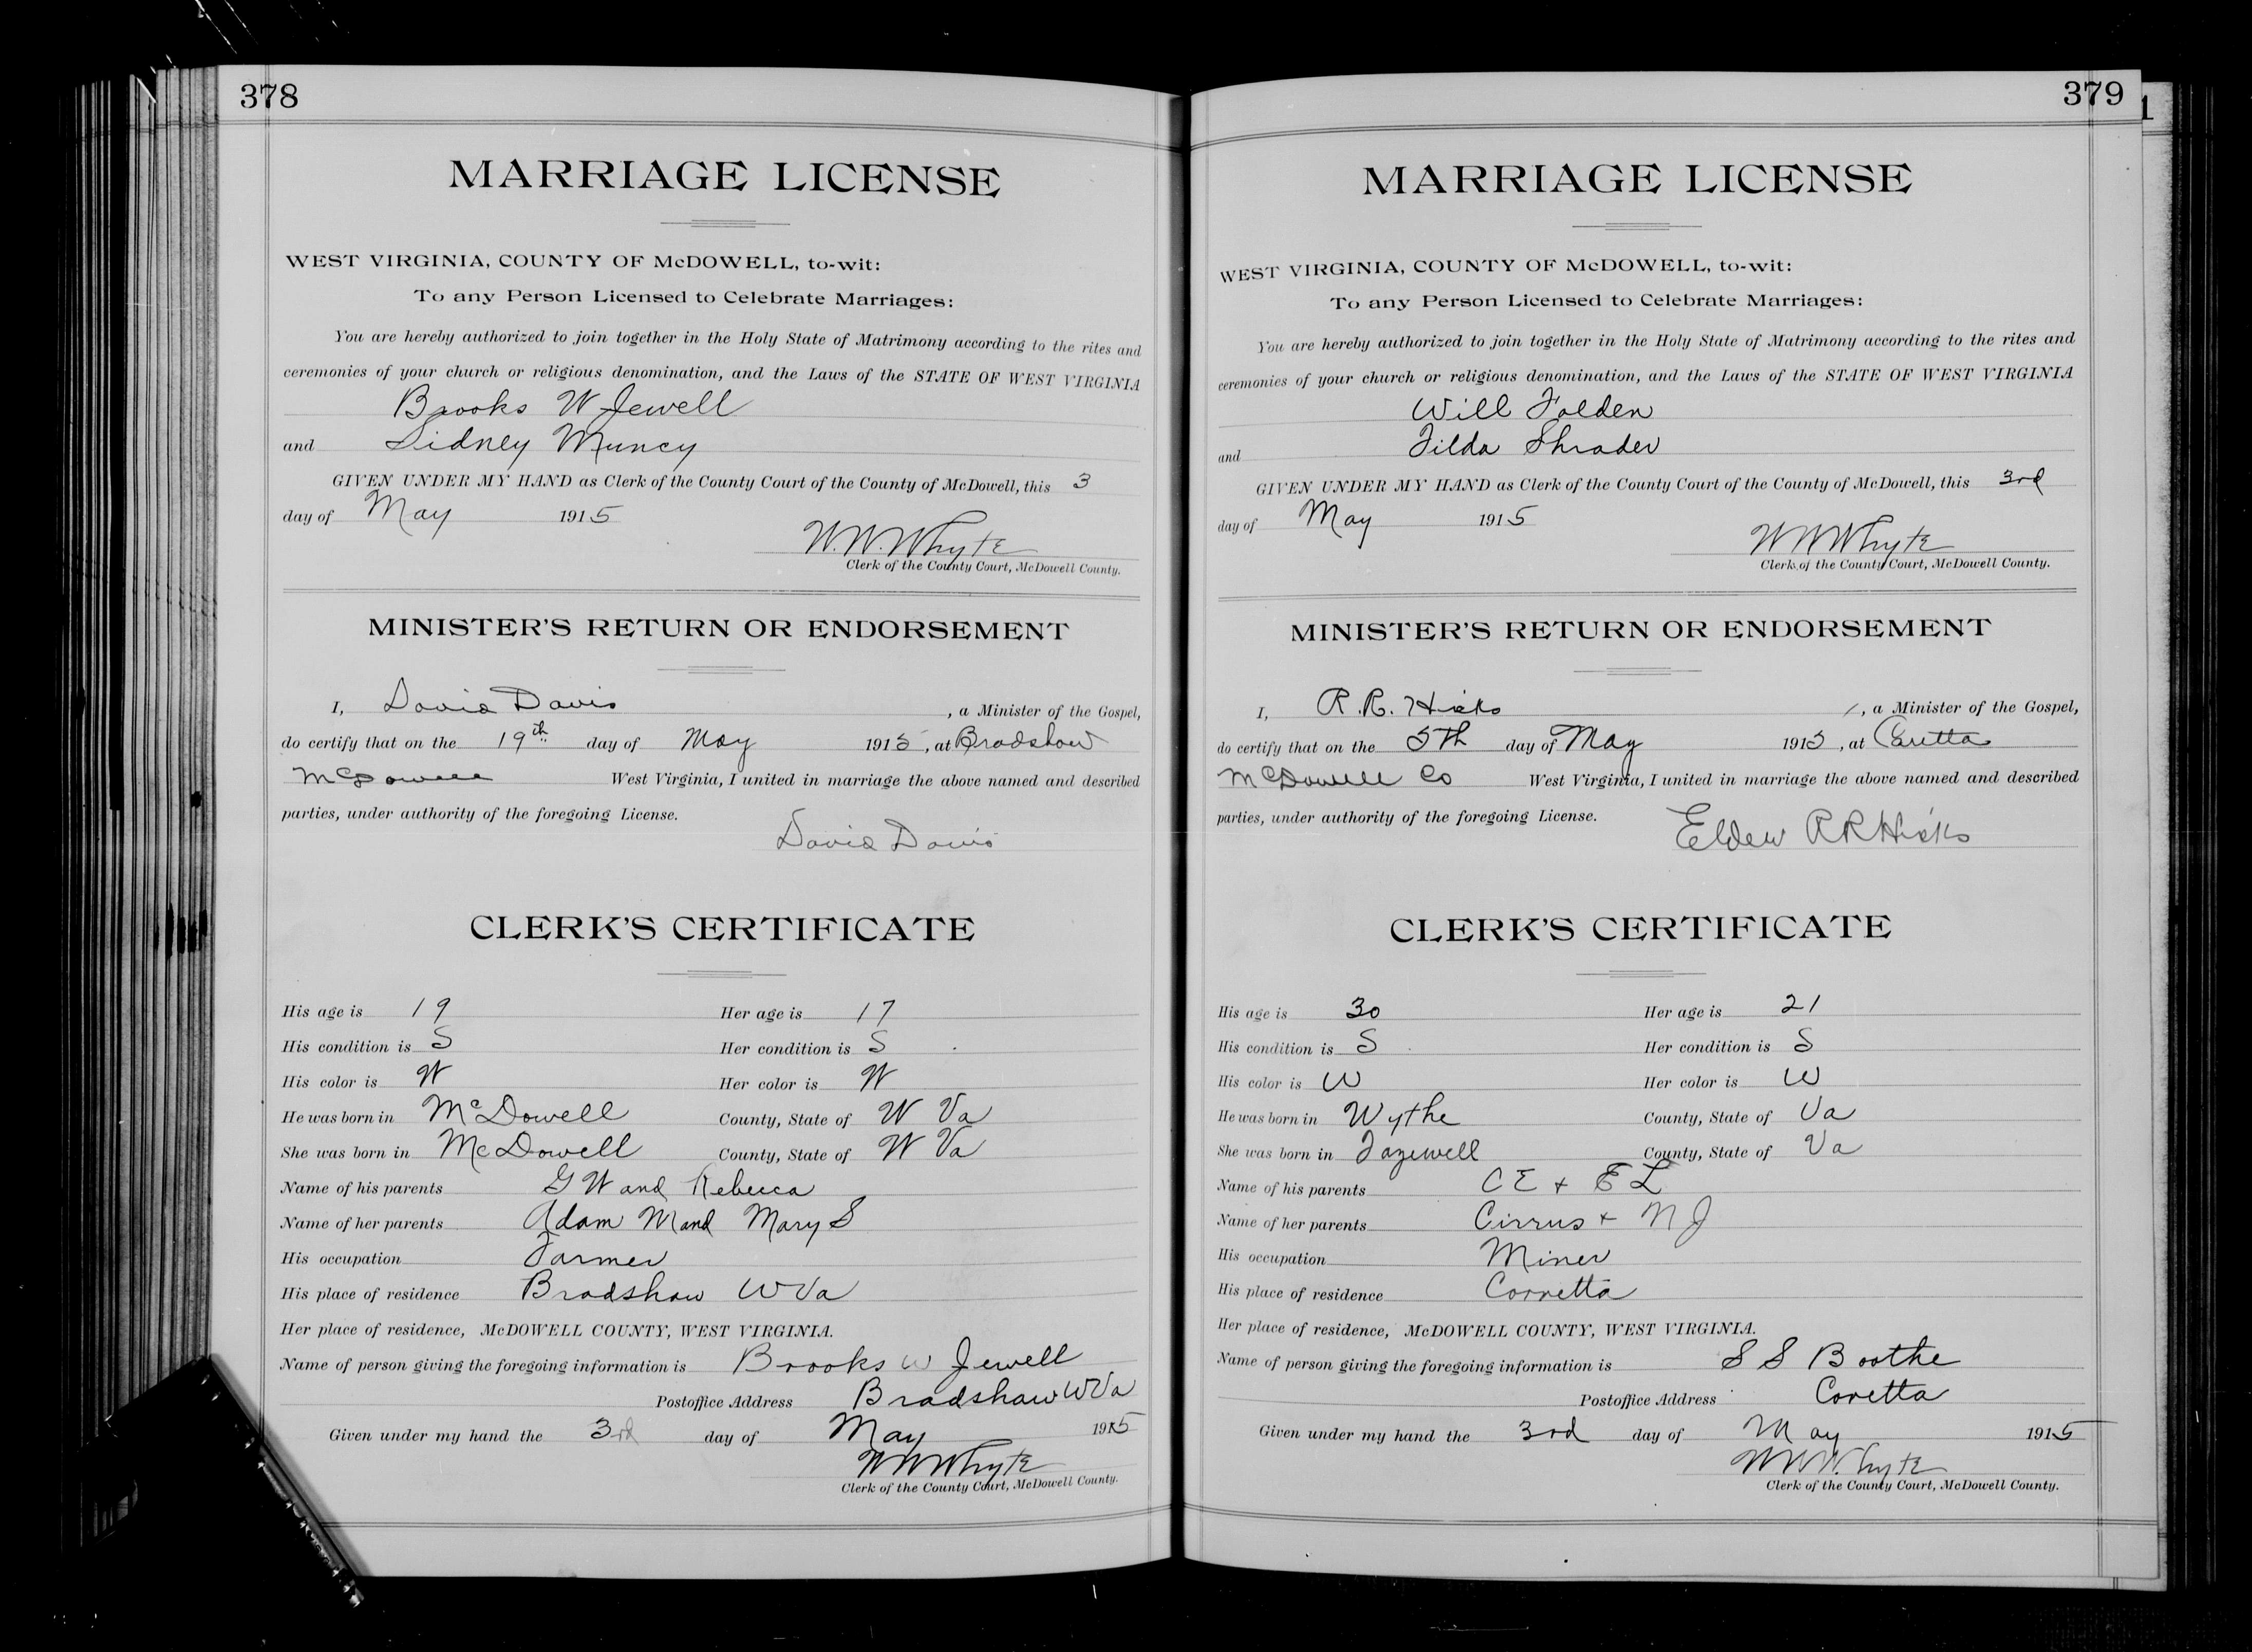 378
MARRIAGE LICENSE
WEST VIRGINIA, COUNTY OF McDOWELL, to-wit:
To any Person Licensed to Celebrate Marriages:
You are hereby authorized to join together in the Holy State of Matrimony according to the rites and
ceremonies of your church or religious denomination, and the Laws of the STATE OF WEST VIRGINIA
Brooks W Jewell
and Sidney Muncy
GIVEN UNDER MY HAND as Clerk of the County Court of the County of McDowell, this 3
day of May 1915
W.W.Whyte
Clerk of the County Court, McDowell County.
MINISTER'S RETURN OR ENDORSEMENT
I, David Davis, a Minister of the Gospel,
do certify that on the 19th day of May 1915, at Bradshaw
McDowell West Virginia, I united in marriage the above named and described
parties, under authority of the foregoing License.
David Davis
CLERK'S CERTIFICATE
His age is 19 Her age is 17
His condition is S Her condition is S
His color is W Her color is W
He was born in McDowell County, State of W Va
She was born in McDowell County, State of W Va
Name of his parents G W and Rebecca
Name of her parents Adam M and Mary S
His occupation Farmer
His place of residence Bradshaw W Va
Her place of residence, McDOWELL COUNTY, WEST VIRGINIA.
Name of person giving the foregoing information is Brooks W Jewell
Postoffice Address Bradshaw W Va
Given under my hand the 3rd day of May 1915
W W Whyte
Clerk of the County Court, McDowell County.
379
MARRIAGE LICENSE
WEST VIRGINIA, COUNTY OF McDOWELL, to-wit:
To any Person Licensed to Celebrate Marriages:
You are hereby authorized to join together in the Holy State of Matrimony according to the rites and
ceremonies of your church or religious denomination, and the Laws of the STATE OF WEST VIRGINIA
Will Folden
and Tilda Shrader
GIVEN UNDER MY HAND as Clerk of the County Court of the County of McDowell, this 3rd
day of May 1915
W W Whyte
Clerk of the County Court, McDowell County.
MINISTER'S RETURN OR ENDORSEMENT
I, R.R. Hicks, a Minister of the Gospel,
do certify that on the 5th day of May 1915, at Caretta
McDowell Co West Virginia, I united in marriage the above named and described
parties, under authority of the foregoing License.
Elder R R Hicks
CLERK'S CERTIFICATE
His age is 30 Her age is 21
His condition is S Her condition is S
His color is W Her color is W
He was born in Wythe County, State of Va
She was born in Tazewell County, State of Va
Name of his parents C E + E L
Name of her parents Cirrus + N J
His occupation Miner
His place of residence Corretta
Her place of residence, McDOWELL COUNTY, WEST VIRGINIA.
Name of person giving the foregoing information is S S Boothe
Postoffice Address Coretta
Given under my hand the 3rd day of May 1915
W W. Whyte
Clerk of the County Court, McDowell County.